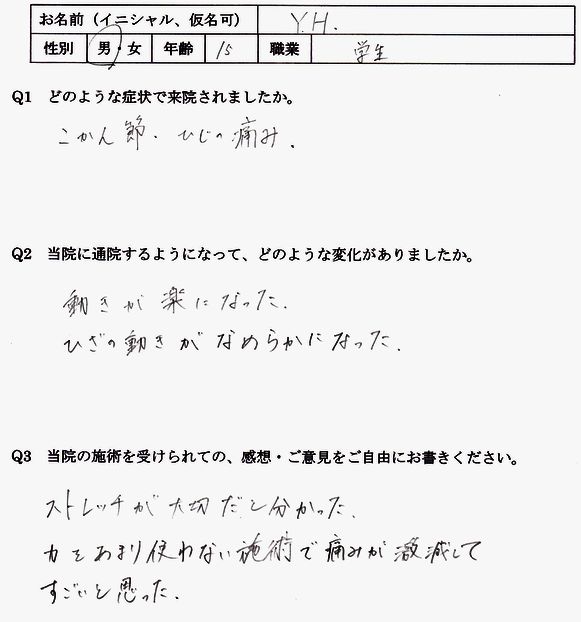 お名前（イニシャル、仮名可） Y.H.
性別 男・女 年齢 15 職業 学生
Q1 どのような症状で来院されましたか。
こかん節・ひじの痛み.
Q2 当院に通院するようになって、どのような変化がありましたか。
動きが楽になった.
ひざの動きがなめらかになった.
Q3 当院の施術を受けられての、感想・ご意見をご自由にお書きください。
ストレッチが大切だと分かった.
力をあまり使わない施術で痛みが激減して
すごいと思った.